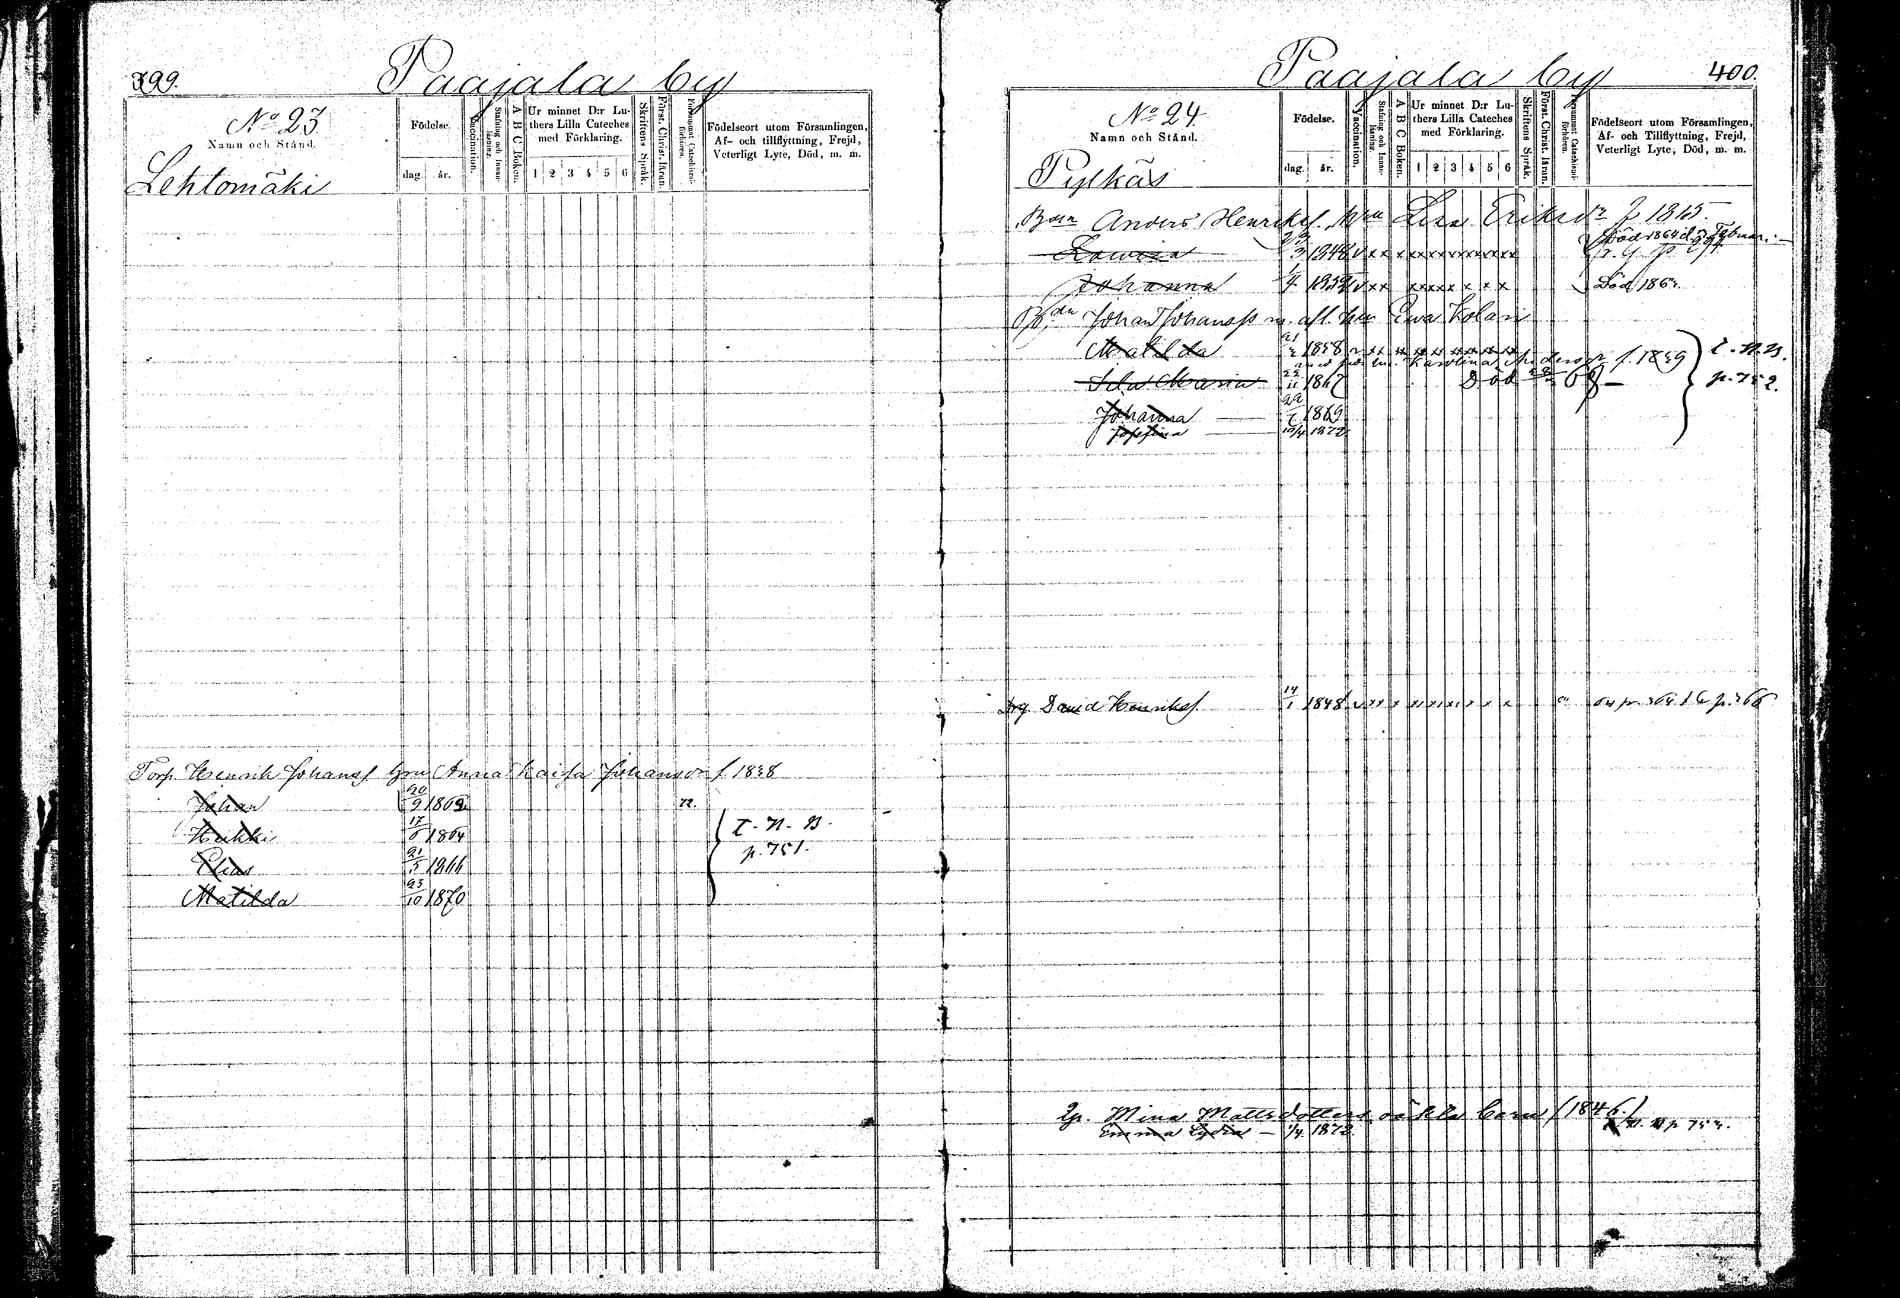 399.
Paajala by
No 23
Namn och Stånd.
Födelse.
dag. år.
Vaccination.
Stafning och Innanläsning.
A B C Boken.
Ur minnet D:r Luthers Lilla Cateches med Förklaring.
1 2 3 4 5 6
Skriftens Språk.
Först. Christ. läran.
Försummat Catechismiförhören.
Födelseort utom Församlingen,
Af- och tillflyttning, Frejd,
Veterligt Lyte, Död, m. m.
Lehtomäki
Torp. Henrik Johanss. hru Anna Kaisa Johansdr f. 1838
Johan 20/9 1862 72.
Heikki 17/6 1864
T. N. B.
p. 751.
Elias 21/5 1866
Matilda 23/10 1870
Paajala by
400.
No 24
Namn och Stånd.
Födelse.
dag. år.
Vaccination.
Stafning och Innanläsning
A B C Boken.
Ur minnet D:r Luthers Lilla Cateches med Förklaring.
1 2 3 4 5 6
Skriftens Språk.
Först. Christ. läran.
Försummat Catechismiförhören.
Födelseort utom Församlingen,
Af- och Tillflyttning, Frejd,
Veterligt Lyte, Död, m. m.
Pylkäs
Bdn Anders Henrikss. hru Lisa Eriksdr f. 1815.
Lowisa 1848 v x x x x x x x x x x x x Död 1864 d. Februari
Johanna v x x x x x x x x x x Död 186
Bdn Johan Johanss m. afl. hru Ewa Kolari
Matilda 1858
Karolina Andersdr f. 1839
T. N. B.
p. 752.
Ida Maria 22/11 1867 Död 68
Johanna 1869
Josefina 10/4 1872
Drg David Henrikss. 14/1 1848 v x x x x x x x x x x
Qp. Mina Mattsdotters oäkta barn (1846.)
Emma Lydia — 1/4 1872.